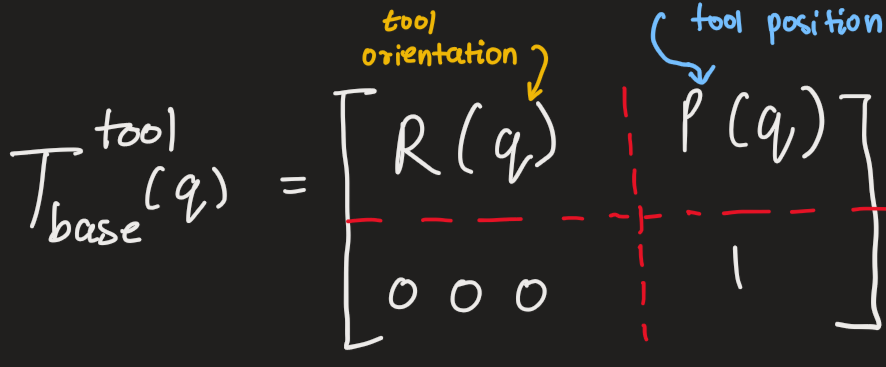 tool
orientation
tool position
T_base^tool (q) = [ R(q) P(q)
0 0 0 1 ]